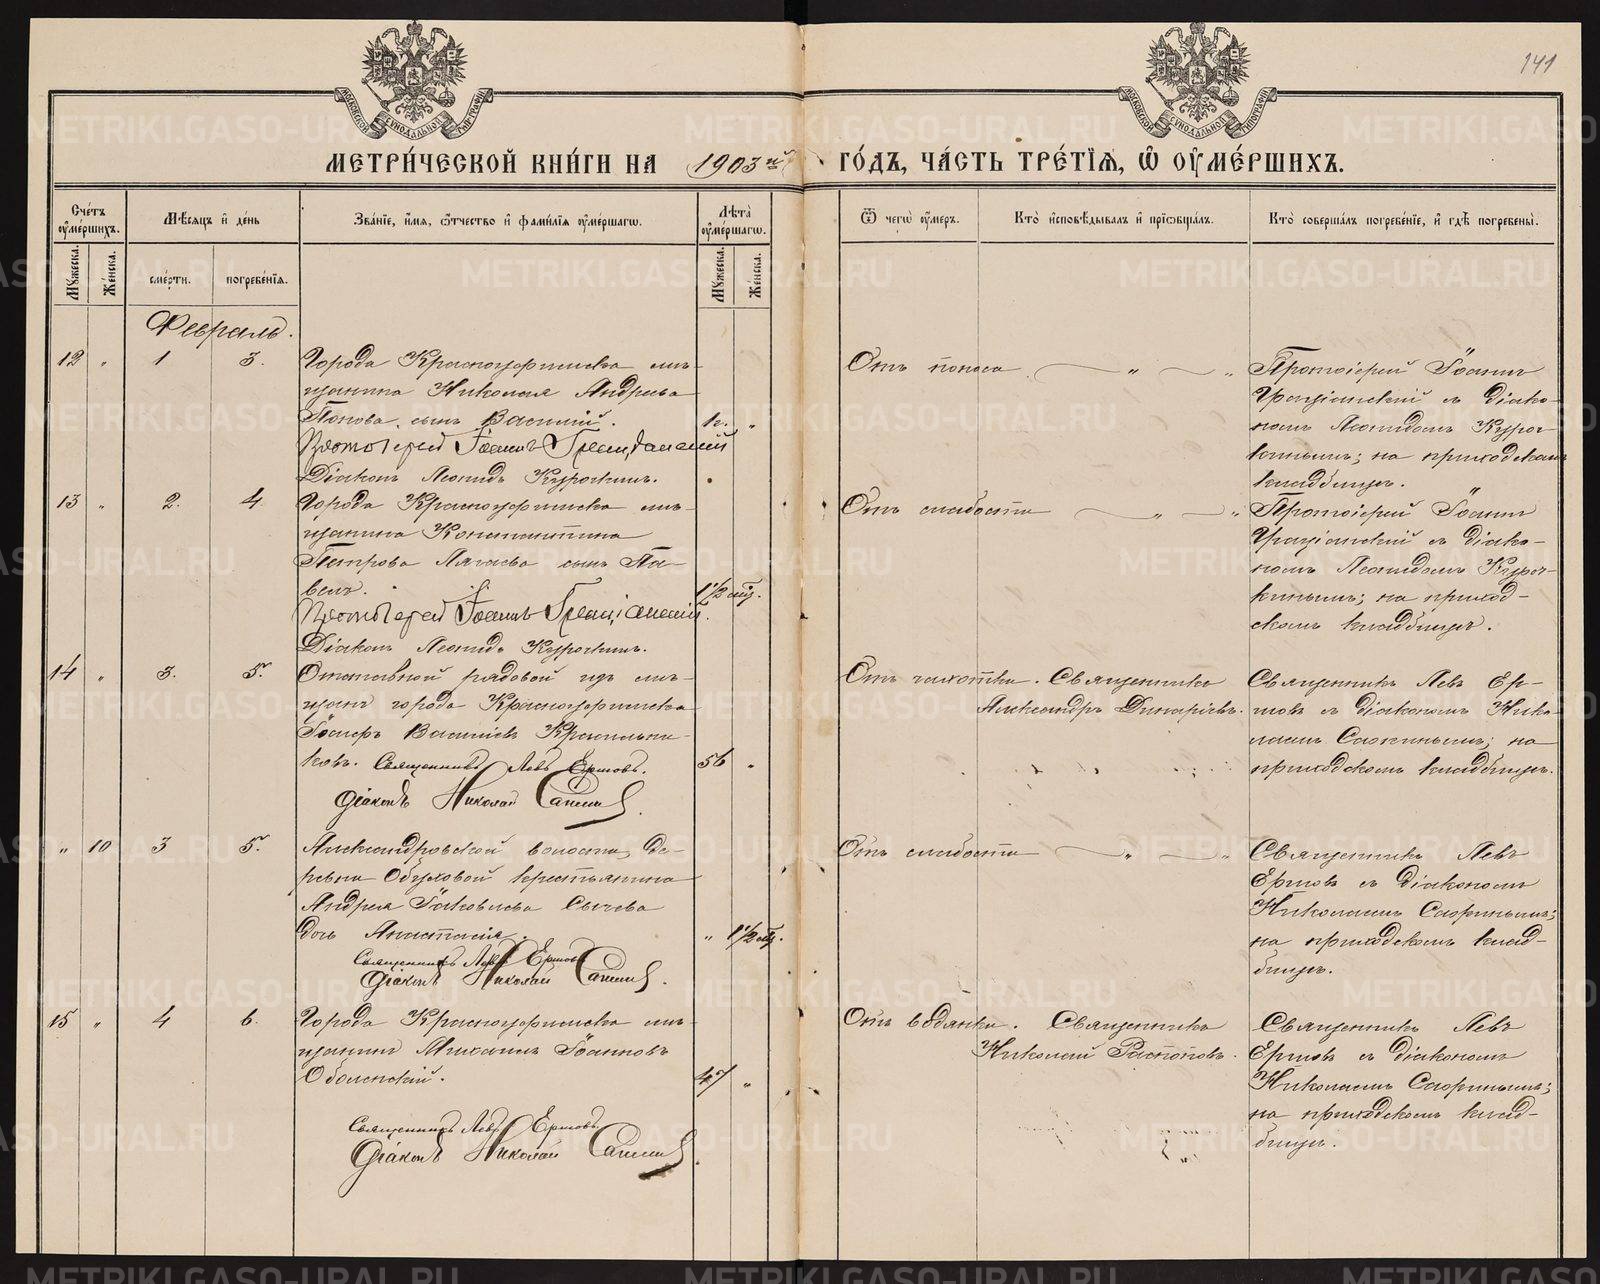 141
МОСКОВСКОЙ СѴНОДАЛЬНОЙ ТИПОГРАФІИ
МОСКОВСКОЙ СѴНОДАЛЬНОЙ ТИПОГРАФІИ
МЕТРИ́ЧЕСКОЙ КНИ́ГИ НА 1903й ГО́ДЪ, ЧА́СТЬ ТРЕ́ТІѦ, Ѡ ОУМЕ́РШИХЪ.
Сче́тъ оуме́ршихъ.
Мѣсяцъ и де́нь
Зва́ніе, и́мя, о́тчество и фами́лія оуме́ршагѡ.
Лѣта̀ оуме́ршагѡ.
Ѿ чегѡ̀ оу́меръ.
Кто̀ исповѣ́дывалъ и пріѡбща́лъ.
Кто̀ соверша́лъ погребе́ніе, и гдѣ̀ погребены̀.
Му́жеска.
Же́нска.
сме́рти.
погребе́нія.
Му́жеска.
Же́нска.
Февраль.
12 " 1 3. Города Красноуфимска мѣ-
щанина Николая Андреева
Попова сынъ Василій. "
Протоіерей Іоаннъ Граціанскій
Діаконъ Леонидъ Курочкинъ.
Отъ поноса " "
Протоіерей Іоаннъ
Граціанскій съ діако-
номъ Леонидомъ Куроч-
кинымъ; на приходскомъ
кладбищѣ.
13 " 2. 4. Города Красноуфимска мѣ-
щанина Константина
Петрова сынъ Па-
велъ. 1½ мѣс.
Протоіерей Іоаннъ Граціанскій.
Діаконъ Леонидъ Курочкинъ.
Отъ слабости " "
Протоіерей Іоаннъ
Граціанскій съ діако-
номъ Леонидомъ Куроч-
кинымъ; на приход-
скомъ кладбищѣ.
14 " 3. 5. Отставной рядовой изъ мѣ-
щанъ города Красноуфимска
Васильевъ Красильни-
ковъ. Священникъ Левъ Ершовъ. 56 "
Діаконъ Николай
Отъ чахотки. Священникъ
Александръ
Священникъ Левъ Ер-
шовъ съ діакономъ Нико-
лаемъ на
приходскомъ кладбищѣ.
" 10 3 5. Александровской волости, де-
ревни Обуховой крестьянина
Андрея Іаковлева Сычева
дочь Анастасія. " 1½ мѣс.
Священникъ Левъ Ершовъ
Діаконъ Николай
Отъ слабости " "
Священникъ Левъ
Ершовъ съ діакономъ
Николаемъ
на приходскомъ клад-
бищѣ.
15 " 4 6. Города Красноуфимска мѣ-
щанинъ Михаилъ Іоанновъ
Оболенскій. 47 "
Священникъ Левъ Ершовъ
Діаконъ Николай
Отъ водянки. Священникъ
Николай Распоповъ.
Священникъ Левъ
Ершовъ съ діакономъ
Николаемъ
на приходскомъ клад-
бищѣ.
METRIKI.GASO-URAL.RU